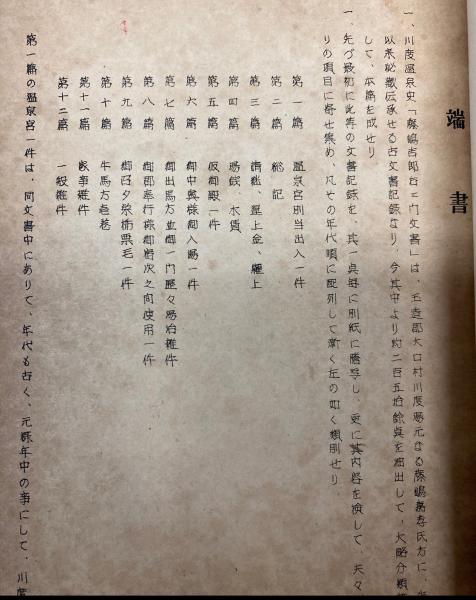 端書
一、川度温泉史「藤嶋吉郎右エ門文書」は、玉造郡大口村川度湯元なる藤嶋
以来秘蔵伝承せる古文書記録なり、今其中より約二百五拾余点を抽出して、大略分類
して、本篇を成せり
一、先づ最初に此等の文書記録を、其一点毎に別紙に謄写し、更に其内容を検して、夫々
りの項目に寄せ集め、凡その年代順に配列して漸く左の如く類別せり
第一篇 温泉宮別当出入一件
第二篇 総記
第三篇 請狀、歴上金、献上
第四篇 湯銭、木賃
第五篇 仮御殿一件
第六篇 御中奥様御入湯一件
第七篇 御出馬方並御一門歴々湯治雑件
第八篇 御郡奉行様御村次之向使用一件
第九篇 御召夕粂栃栗毛一件
第十篇 牛馬方壱巻
第十一篇 公事雑件
第十二篇 一般雑件
第一篇の温泉宮一件は、同文書中にありて、年代も古く、元禄年中の事にして、川度